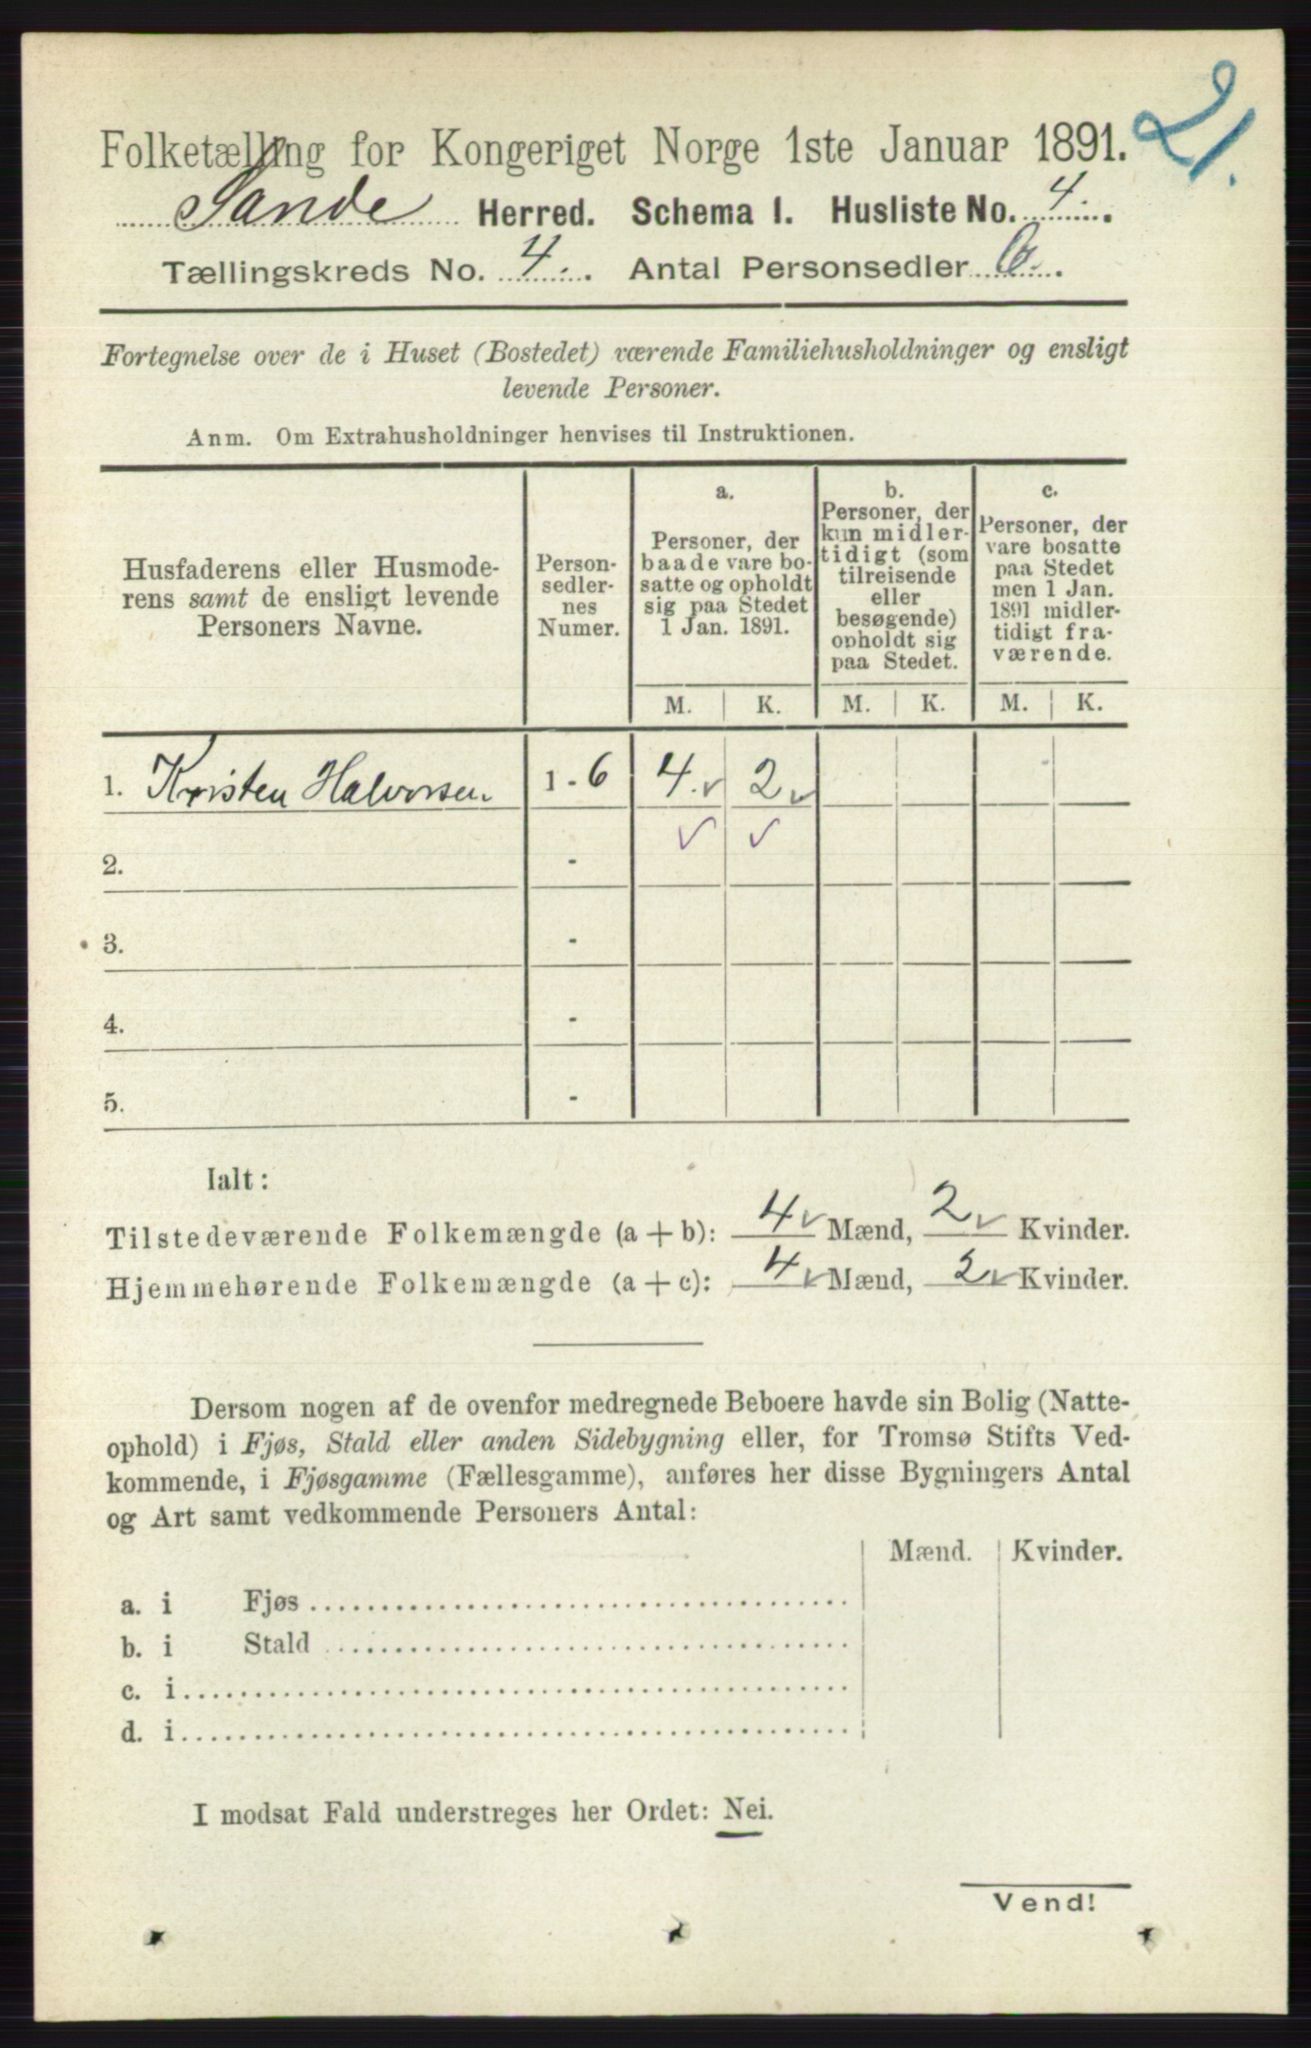 21.
Folketælling for Kongeriget Norge 1ste Januar 1891.
Sande Herred. Schema 1. Husliste No. 4.
Tællingskreds No. 4. Antal Personsedler 6.
Fortegnelse over de i Huset (Bostedet) værende Familiehusholdninger og ensligt
levende Personer.
Anm. Om Extrahusholdninger henvises til Instruktionen.
Husfaderens eller Husmode-
rens samt de ensligt levende
Personers Navne.
Person-
sedler-
nes
Numer.
a.
Personer, der
baade vare bo-
satte og opholdt
sig paa Stedet
1 Jan. 1891.
b.
Personer, der
kun midler-
tidigt (som
tilreisende
eller
besøgende)
opholdt sig
paa Stedet.
c.
Personer, der
vare bosatte
paa Stedet
men 1 Jan.
1891 midler-
tidigt fra-
værende.
M. K. M. K. M. K.
1. Kristen Halvorsen 1 - 6 4 ✓ 2 ✓
✓ ✓
2. -
3. -
4. -
5. -
Ialt:
Tilstedeværende Folkemængde (a + b): 4 ✓ Mænd, 2 ✓ Kvinder.
Hjemmehørende Folkemængde (a + c): 4 ✓ Mænd, 2 ✓ Kvinder.
Dersom nogen af de ovenfor medregnede Beboere havde sin Bolig (Natte-
ophold) i Fjøs, Stald eller anden Sidebygning eller, for Tromsø Stifts Ved-
kommende, i Fjøsgamme (Fællesgamme), anføres her disse Bygningers Antal
og Art samt vedkommende Personers Antal:
Mænd. Kvinder.
a. i Fjøs
b. i Stald
c. i
d. i
I modsat Fald understreges her Ordet: Nei.
Vend!